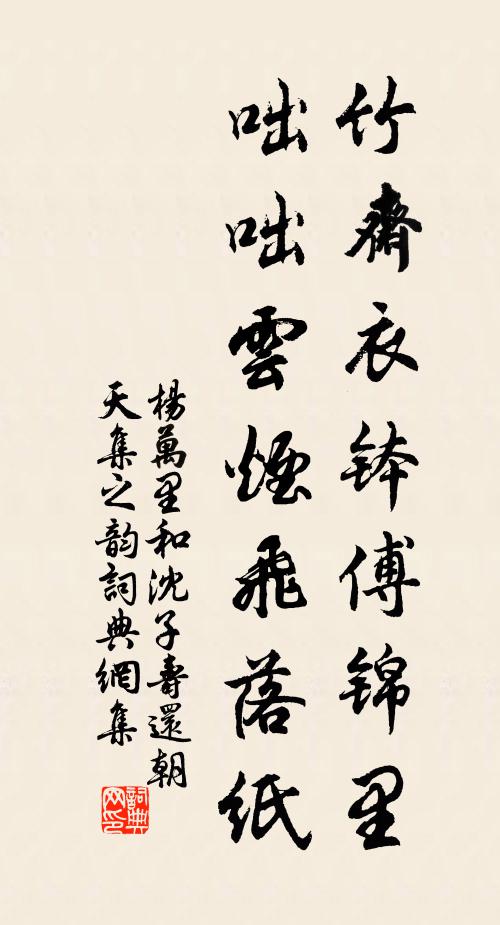 竹齋衣鉢傅錦里
咄咄雲煙飛落紙
楊萬里和沈子壽還朝
天集之韵詞典網集
詞典
网印